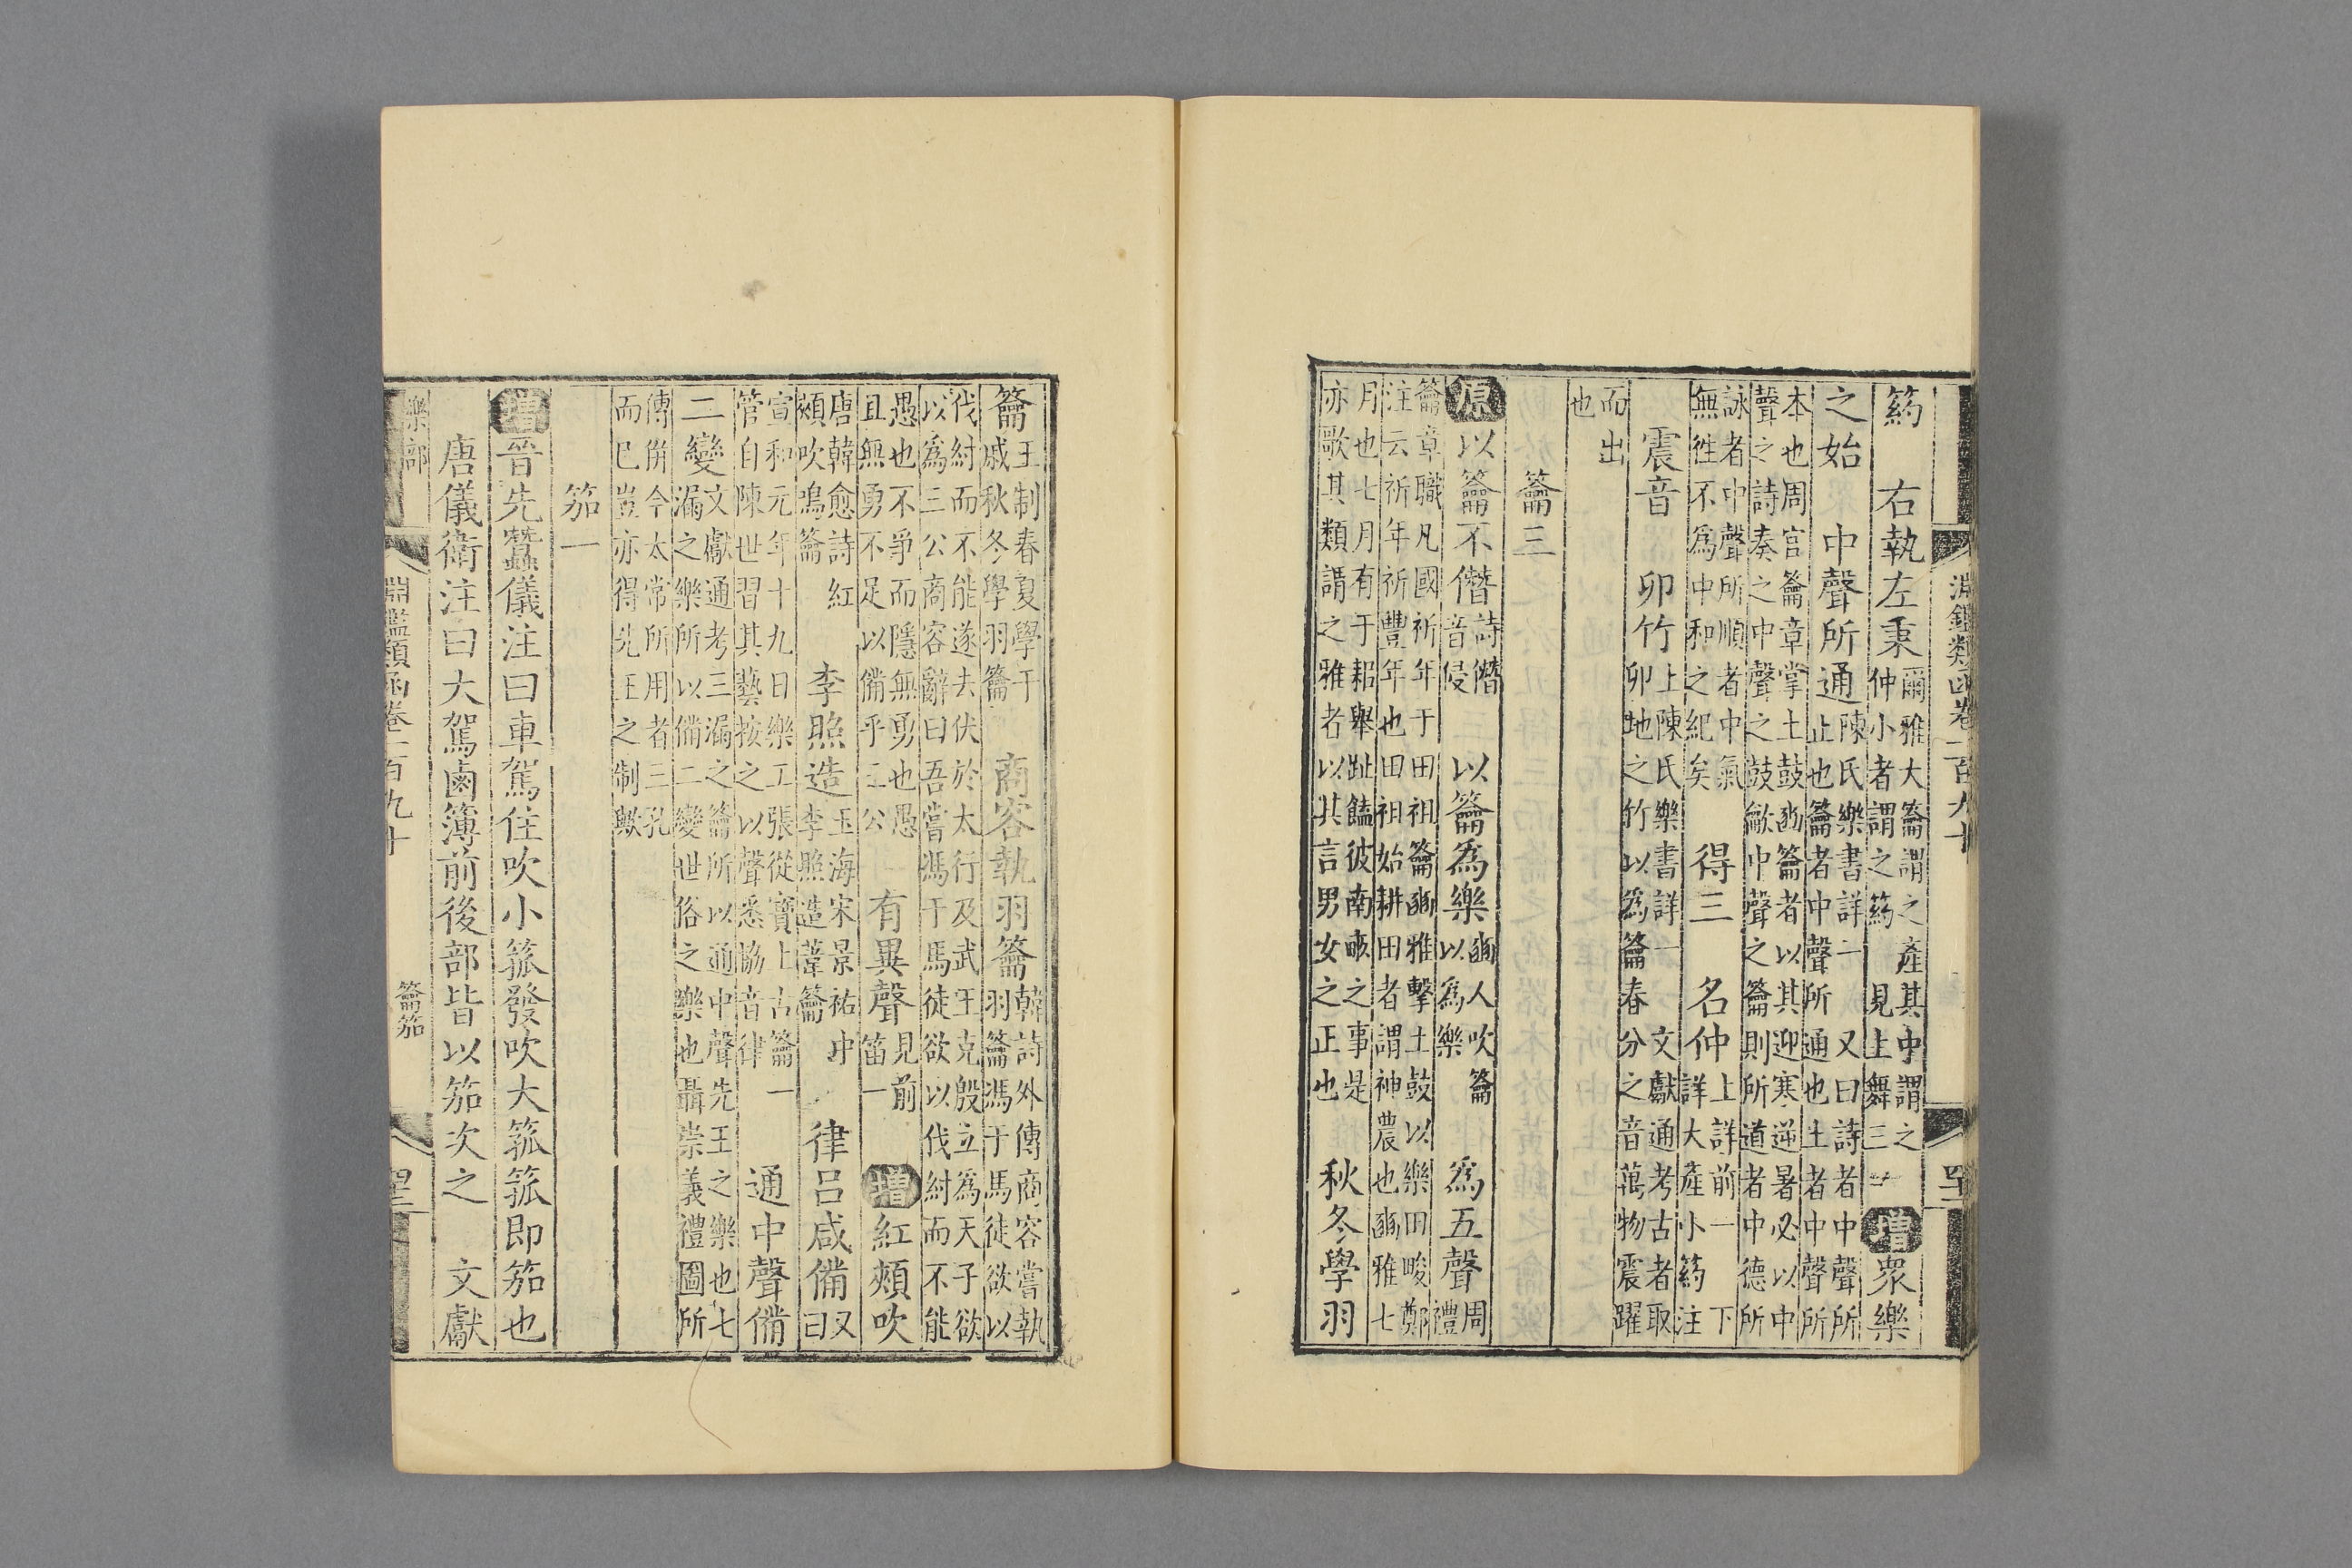 淵鑑類函卷一百九十
籥　右執左秉爾雅大籥謂之產其中謂之仲小者謂之箹　見上舞三　增眾樂
之始　中聲所通陳氏樂書詳一　又曰詩者中聲所止也籥者中聲所通也土者中聲所
本也周官籥章掌土鼓豳籥者以其迎寒逆暑必以中聲之詩奏之中聲之鼓龡中聲之籥則所道者中德所
詠者中聲所順者中氣無徃不為中和之紀矣　得三　名仲上詳前一　下詳大產小箹注
震音　卯竹上陳氏樂書詳一　文獻通考古者取卯地之竹以為籥春分之音萬物震躍
而出也
籥三
原以籥不僭詩僭音侵　以籥為樂豳人吹籥以為樂　為五聲周禮
籥章職凡國祈年于田祖籥豳雅擊土鼓以樂田畯鄭注云祈年祈豐年也田祖始耕田者謂神農也豳雅七
月也七月有于耜舉趾饁彼南畝之事是亦歌其類謂之雅者以其言男女之正也　秋冬學羽
籥王制春夏學干戚秋冬學羽籥　商容執羽籥韓詩外傳商容嘗執羽籥馮于馬徒欲以
伐紂而不能遂去伏於太行及武王克殷立為天子欲以為三公商容辭曰吾嘗馮于馬徒欲以伐紂而不能
愚也不爭而隱無勇也愚且無勇不足以備乎三公　有異聲見前笛一　增紅頰吹
唐韓愈詩紅頰吹鳴籥　李照造玉海宋景祐中李照造葦籥　律呂咸備又曰
宣和元年十九日樂工張從寶上古籥一管自陳世習其藝按之以聲悉協音律　通中聲備
二變文獻通考三漏之籥所以通中聲先王之樂也七漏之樂所以備二變世俗之樂也聶崇義禮圖所
傳併今太常所用者三孔而已豈亦得先王之制歟
笳一
增晉先蠶儀注曰車駕住吹小箛發吹大箛箛即笳也
唐儀衛注曰大駕鹵簿前後部皆以笳次之　文獻
樂部　淵鑑類函卷一百九十　籥笳